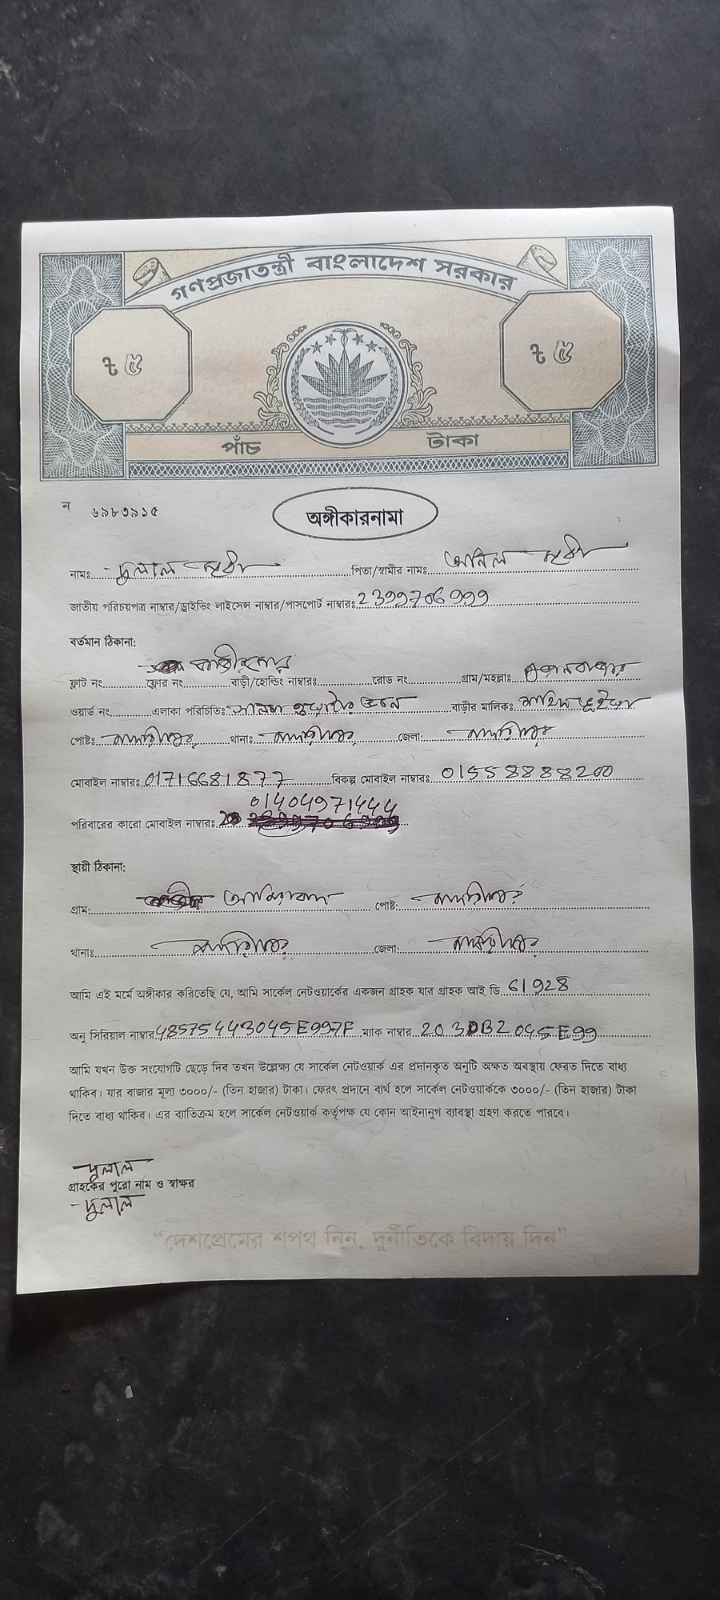 গণপ্রজাতন্ত্রী বাংলাদেশ সরকার
৳ ৫
৳ ৫
পাঁচ টাকা
ন ৬৯৮৩৯১৫
অঙ্গীকারনামা
নামঃ দুলাল পিতা/স্বামীর নামঃ অনিল
জাতীয় পরিচয়পত্র নাম্বার/ড্রাইভিং লাইসেন্স নাম্বার/পাসপোর্ট নাম্বারঃ 2399706999
বর্তমান ঠিকানা:
ফ্লাট নং ফ্লোর নং বাড়ী/হোল্ডিং নাম্বারঃ রোড নং গ্রাম/মহল্লাঃ
ওয়ার্ড নং এলাকা পরিচিতিঃ বাড়ীর মালিকঃ
পোষ্টঃ থানাঃ জেলা:
মোবাইল নাম্বারঃ 01716681877 বিকল্প মোবাইল নাম্বারঃ 01558888200
01404971444
পরিবারের কারো মোবাইল নাম্বারঃ
স্থায়ী ঠিকানা:
গ্রাম: পোষ্ট:
থানাঃ জেলা:
আমি এই মর্মে অঙ্গীকার করিতেছি যে, আমি সার্কেল নেটওয়ার্কের একজন গ্রাহক যার গ্রাহক আই ডি. 61928
অনু সিরিয়াল নাম্বার 48575443045E997F ম্যাক নাম্বার 203DB2045E99
আমি যখন উক্ত সংযোগটি ছেড়ে দিব তখন উল্লেখ্য যে সার্কেল নেটওয়ার্ক এর প্রদানকৃত অনুটি অক্ষত অবস্থায় ফেরত দিতে বাধ্য
থাকিব। যার বাজার মূল্য ৩০০০/- (তিন হাজার) টাকা। ফেরৎ প্রদানে ব্যর্থ হলে সার্কেল নেটওয়ার্ককে ৩০০০/- (তিন হাজার) টাকা
দিতে বাধ্য থাকিব। এর ব্যতিক্রম হলে সার্কেল নেটওয়ার্ক কর্তৃপক্ষ যে কোন আইনানুগ ব্যাবস্থা গ্রহণ করতে পারবে।
দুলাল
গ্রাহকের পুরো নাম ও স্বাক্ষর
দুলাল
"দেশপ্রেমের শপথ নিন, দুর্নীতিকে বিদায় দিন"